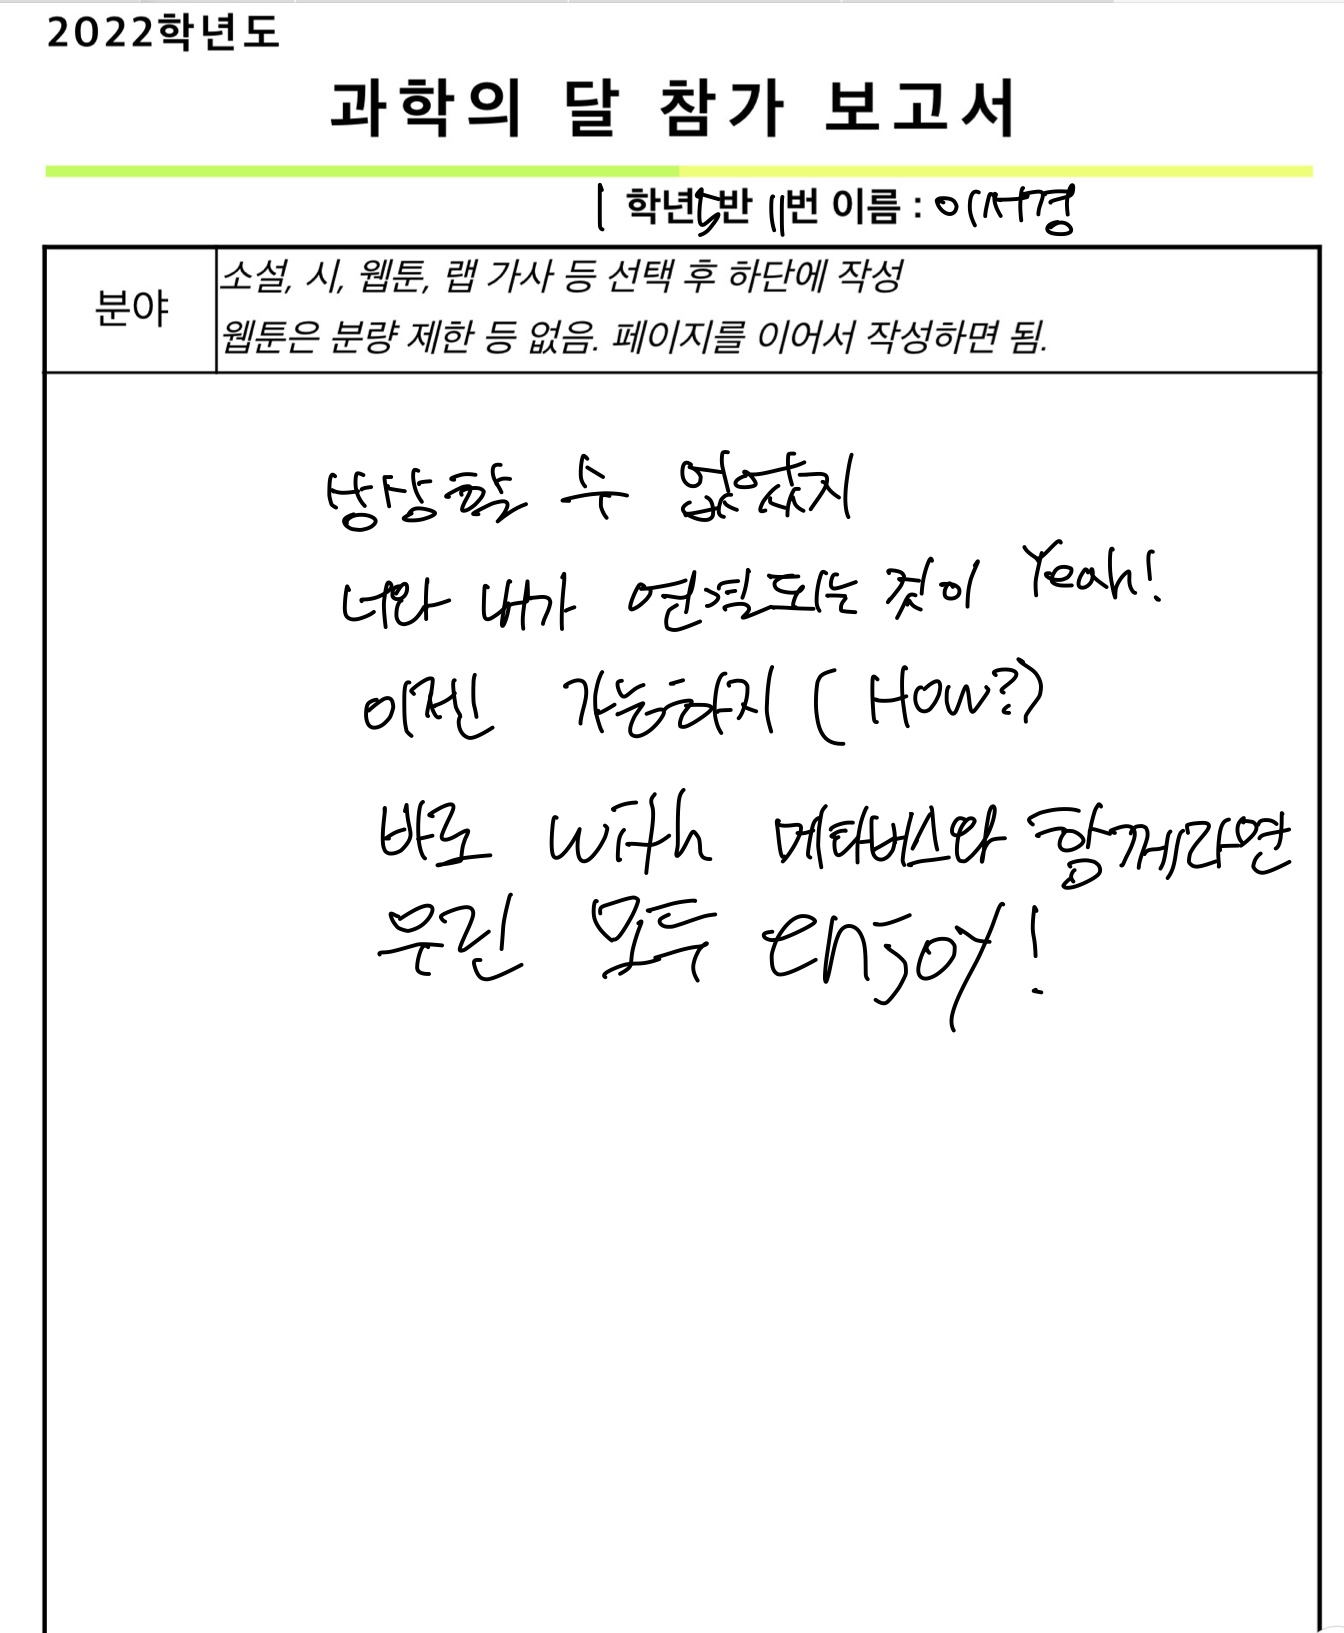 2022학년도
과학의 달 참가 보고서
1 학년 5반 11번 이름 : 이서경
분야
소설, 시, 웹툰, 랩 가사 등 선택 후 하단에 작성
웹툰은 분량 제한 등 없음. 페이지를 이어서 작성하면 됨.
상상할 수 없었지
너와 내가 연결되는 것이 Yeah!
이젠 가능하지 (How?)
바로 with 메타버스와 함께라면
우린 모두 enjoy!